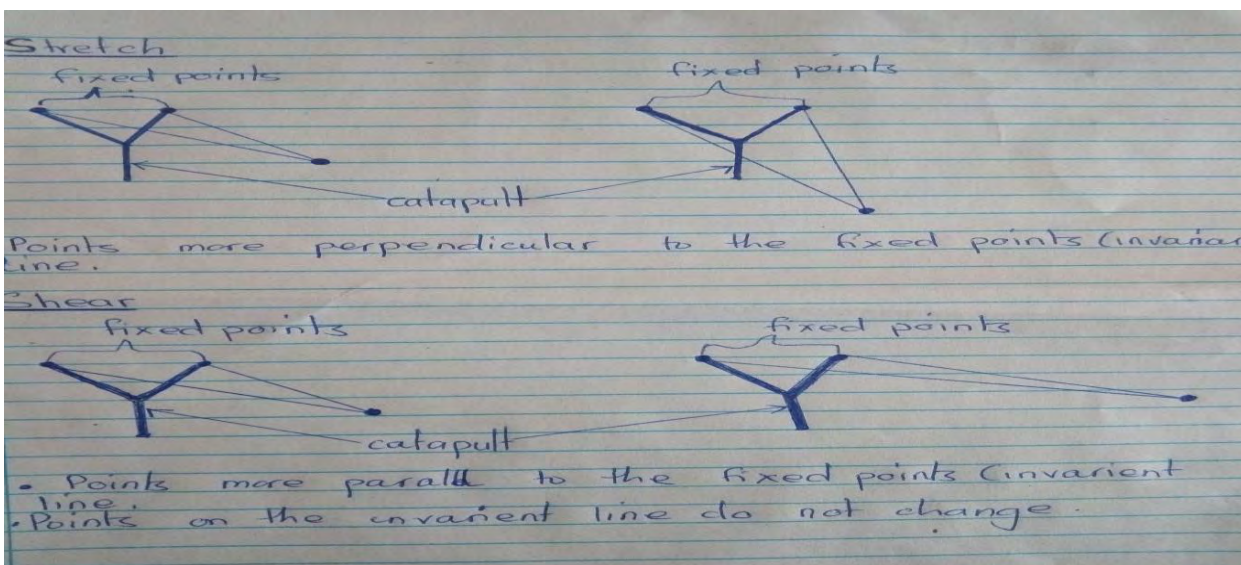 Stretch
fixed points fixed points
catapult
Points more perpendicular to the fixed points (invarian
line.
Shear
fixed points fixed points
catapult
• Points more paralll to the fixed points (invarient
line.
• Points on the invarient line do not change.